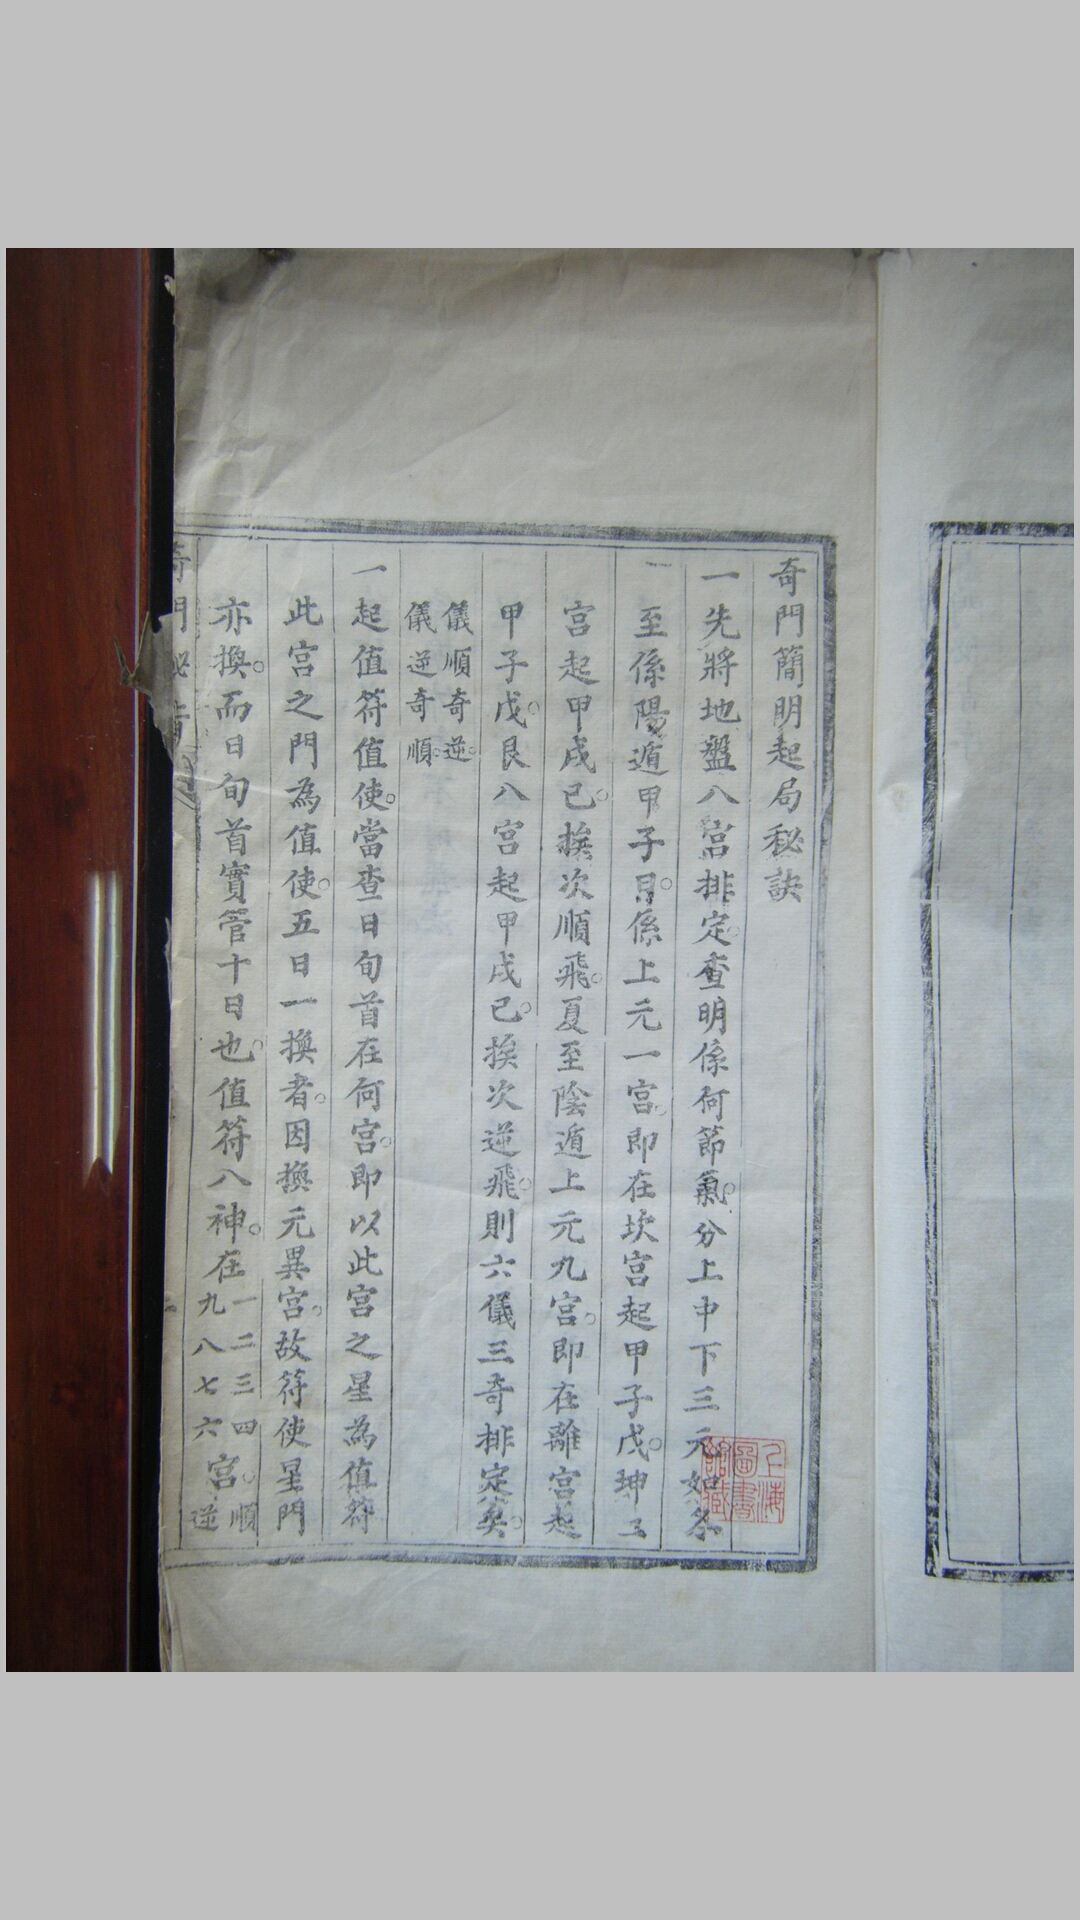 奇門簡明起局秘訣
一先將地盤八宮排定查明係何節氣分上中下三元如冬
至係陽遁甲子日係上元一宮即在坎宮起甲子戊坤二
宮起甲戌己挨次順飛夏至陰遁上元九宮即在離宮起
甲子戊艮八宮起甲戌己挨次逆飛則六儀三奇排定矣
儀順奇逆
儀逆奇順
一起值符值使當查日旬首在何宮即以此宮之星為值符
此宮之門為值使五日一換者因換元異宮故符使星門
亦換而日旬首實管十日也值符八神在
一二三四
九八七六
宮
順
逆
上海圖書館藏